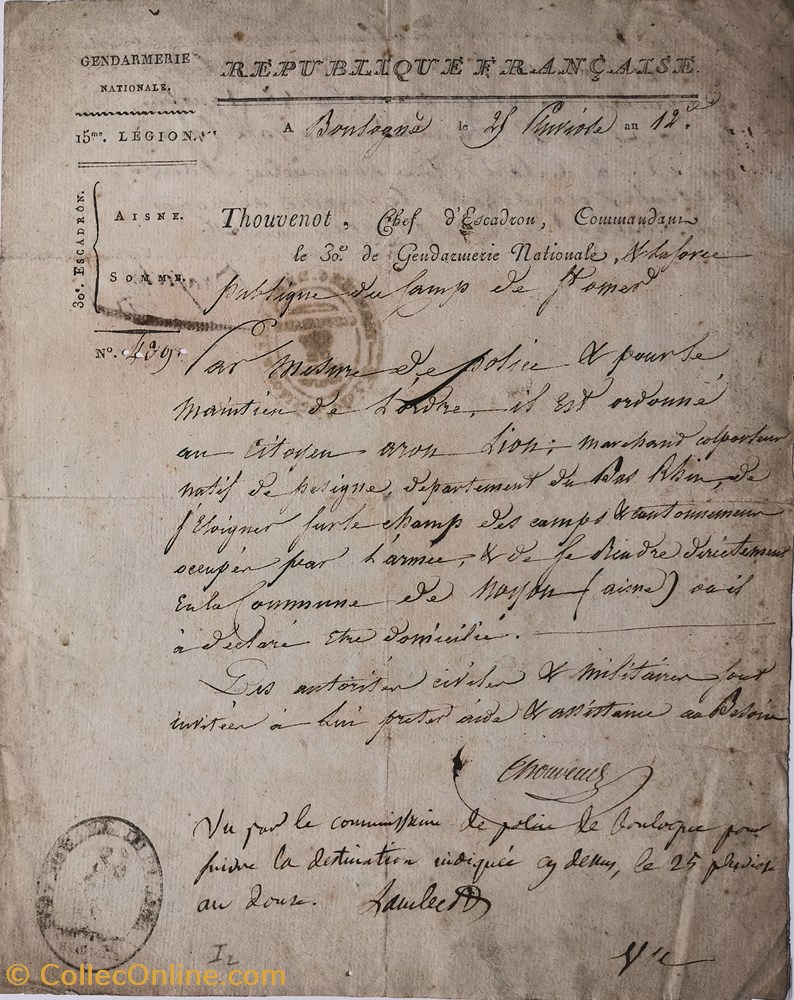 GENDARMERIE
NATIONALE.
15me. LÉGION.
30e. ESCADRON.
AISNE.
SOMME.
No. 439.
RÉPUBLIQUE FRANÇAISE.
A Boulogne le 25 Pluviose an 12.e
Thouvenot, Chef d'Escadron, Commandant
le 30e. de Gendarmerie Nationale, & la force
publique du Camp de St omer
Par mesure de police & pour le
maintien de L'ordre, il est ordonné
au Citoyen aron Lion; marchand colporteur
natif de département du Bas Rhin, de
s'Eloigner sur le champ des camps & cantonnemens
occupés par L'armée, & de se Rendre directement
En la Commune de Noyon (aisne) ou il
à déclaré être domicilié.
Les autorités civiles & militaires sont
invitées à Lui preter aide & assistance au Besoin
Thouvenot
Vu par le commissaire de police de boulogne pour
suivre la destination indiquée cy dessus, le 25 pluviose
an douze.
I2
© CollecOnline.com